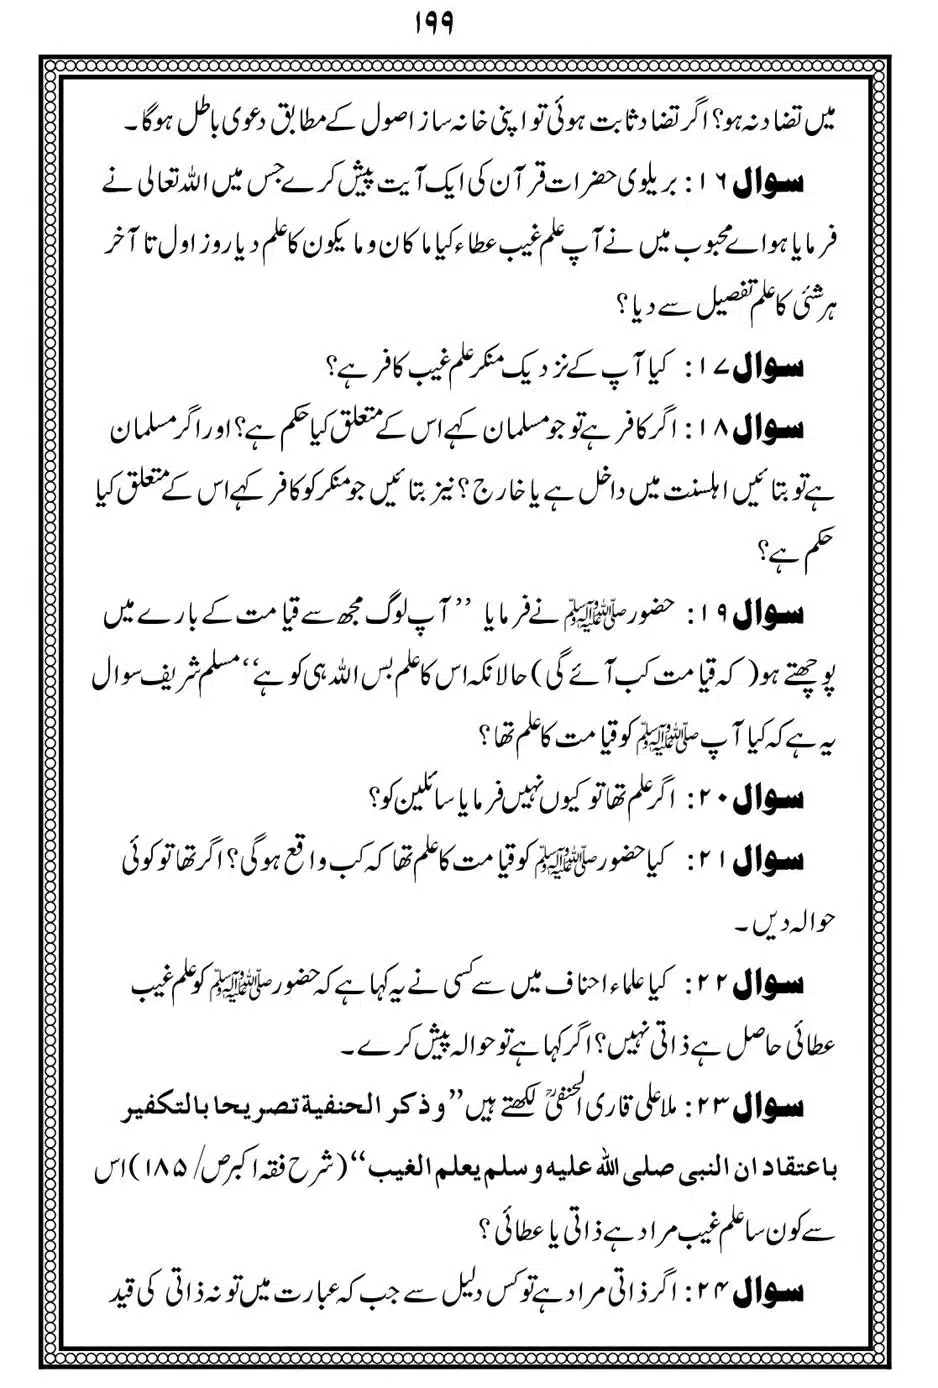 ۱۹۹
میں تضاد نہ ہو؟ اگر تضاد ثابت ہوئی تو اپنی خانہ ساز اصول کے مطابق دعوی باطل ہوگا۔
سوال ۱۶: بریلوی حضرات قرآن کی ایک آیت پیش کرے جس میں اللہ تعالی نے
فرمایا ہو اے محبوب میں نے آپ علم غیب عطاء کیا ما کان وما یکون کا علم دیا روز اول تا آخر
ہر شئی کا علم تفصیل سے دیا؟
سوال ۱۷: کیا آپ کے نزدیک منکر علم غیب کافر ہے؟
سوال ۱۸: اگر کافر ہے تو جو مسلمان کہے اس کے متعلق کیا حکم ہے؟ اور اگر مسلمان
ہے تو بتائیں اہلسنت میں داخل ہے یا خارج؟ نیز بتائیں جو منکر کو کافر کہے اس کے متعلق کیا
حکم ہے؟
سوال ۱۹: حضور ﷺ نے فرمایا ’’ آپ لوگ مجھ سے قیامت کے بارے میں
پوچھتے ہو (کہ قیامت کب آئے گی) حالانکہ اس کا علم بس اللہ ہی کو ہے‘‘ مسلم شریف سوال
یہ ہے کہ کیا آپ ﷺ کو قیامت کا علم تھا؟
سوال ۲۰: اگر علم تھا تو کیوں نہیں فرمایا سائلین کو؟
سوال ۲۱: کیا حضور ﷺ کو قیامت کا علم تھا کہ کب واقع ہوگی؟ اگر تھا تو کوئی
حوالہ دیں۔
سوال ۲۲: کیا علماء احناف میں سے کسی نے یہ کہا ہے کہ حضور ﷺ کو علم غیب
عطائی حاصل ہے ذاتی نہیں؟ اگر کہا ہے تو حوالہ پیش کرے۔
سوال ۲۳: ملا علی قاری الحنفیؒ لکھتے ہیں ’’وذكر الحنفية تصريحا بالتكفير
باعتقاد ان النبی صلی اللہ علیہ وسلم يعلم الغيب‘‘ (شرح فقہ اکبر ص/۱۸۵) اس
سے کون سا علم غیب مراد ہے ذاتی یا عطائی؟
سوال ۲۴: اگر ذاتی مراد ہے تو کس دلیل سے جب کہ عبارت میں تو نہ ذاتی کی قید